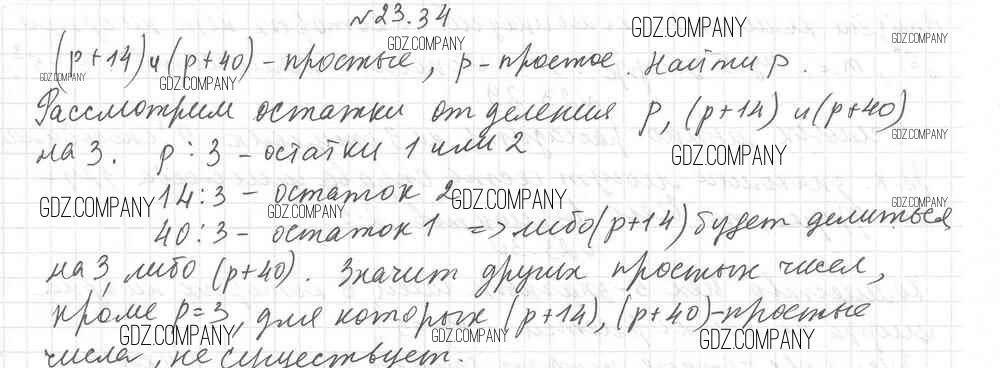 №23.34
(p+14) и (p+40) - простые, p - простое. Найти p.
Рассмотрим остатки от деления p, (p+14) и (p+40)
на 3. p : 3 - остатки 1 или 2
14 : 3 - остаток 2
40 : 3 - остаток 1 => либо (p+14) будет делиться
на 3, либо (p+40). Значит других простых чисел,
кроме p=3, для которых (p+14), (p+40) - простые
числа, не существует.
GDZ.COMPANY
GDZ.COMPANY
GDZ.COMPANY
GDZ.COMPANY
GDZ.COMPANY
GDZ.COMPANY
GDZ.COMPANY
GDZ.COMPANY
GDZ.COMPANY
GDZ.COMPANY
GDZ.COMPANY
GDZ.COMPANY
GDZ.COMPANY
GDZ.COMPANY